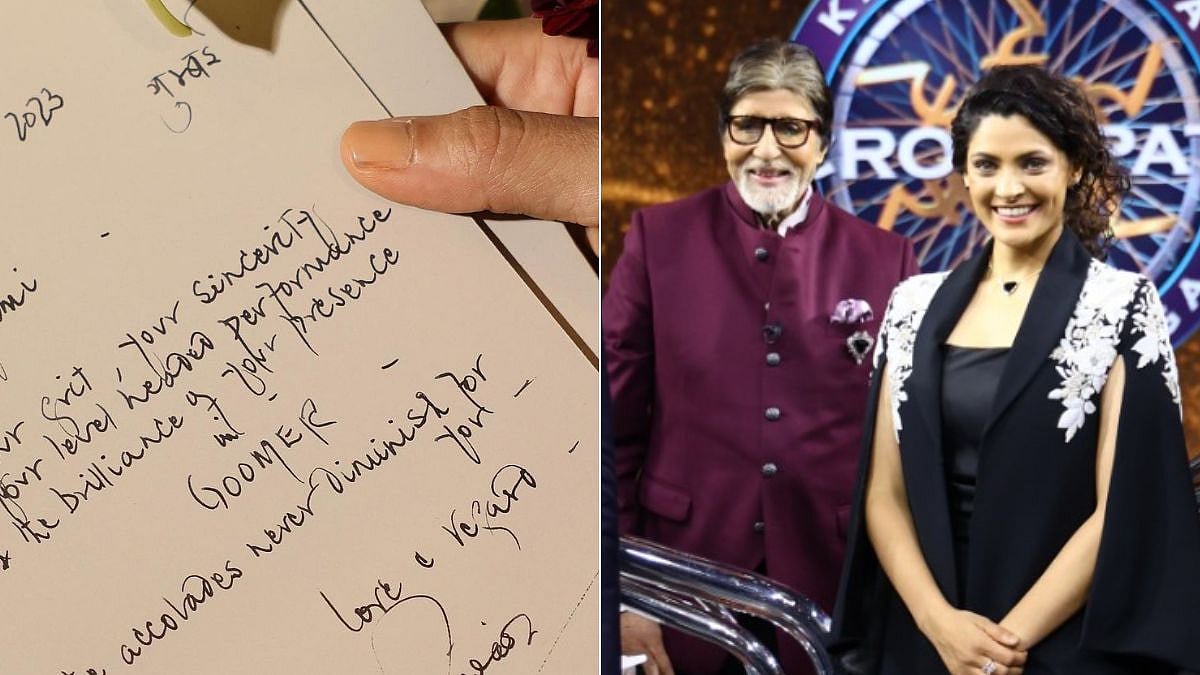 2023
mi
ur grit, your sincerity
your level headed performance
& the brilliance of your presence
in
GOOMER
accolades never diminish for
you -
love & regard
CRO PA